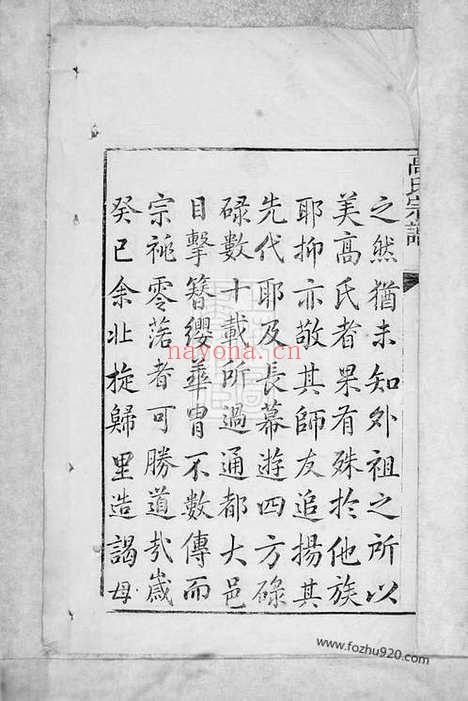 高氏宗譜
之然猶未知外祖之所以
美高氏者果有殊於他族
耶抑亦敬其師友追揚其
先代耶及長幕遊四方碌
碌數十載所過通都大邑
目擊簪纓華胄不數傳而
宗祧零落者可勝道哉歲
癸巳余北旋歸里造謁母
nayona.cn
www.fozhu920.com